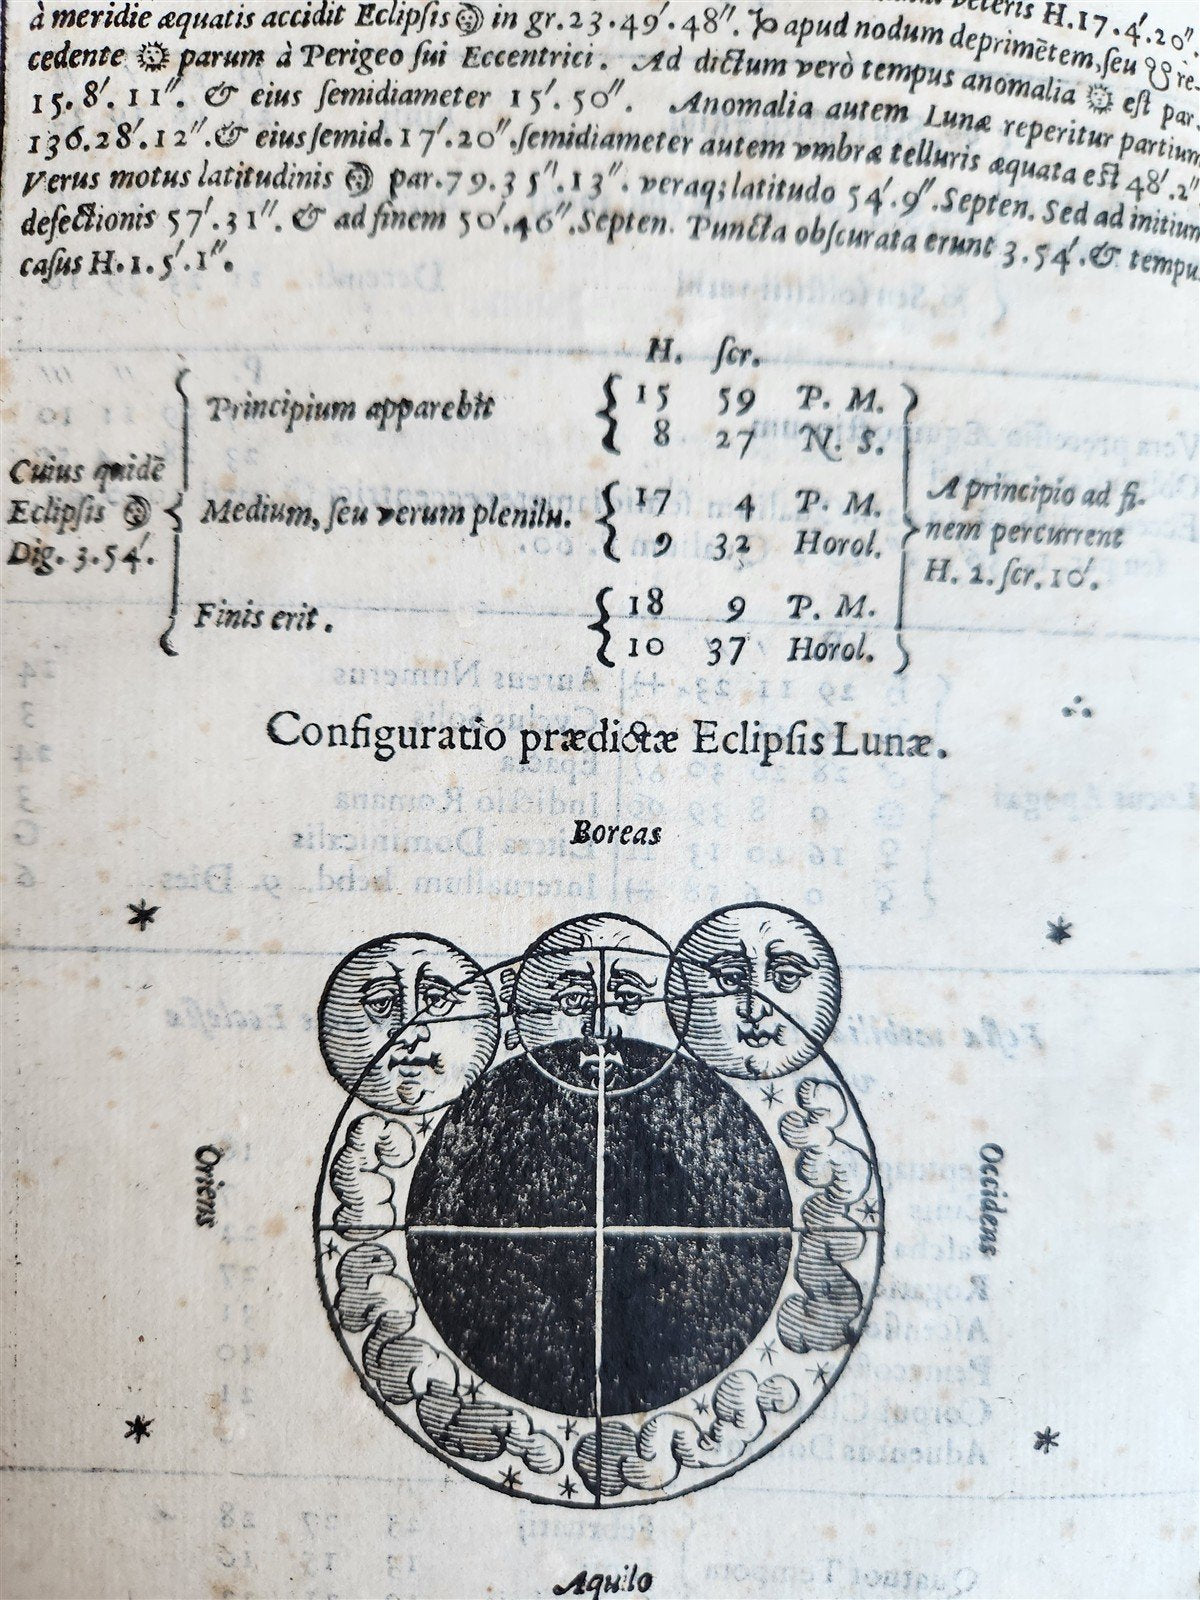 veteris H.17.4′.20″
à meridie æquatis accidit Eclipſis in gr.23.49′.48″. ♑ apud nodum deprimētem, ſeu ☋ re-
cedente ☉ parum à Perigeo ſui Eccentrici. Ad dictum verò tempus anomalia ☉ eſt par.
15.8′.11″. & eius ſemidiameter 15′.50″. Anomalia autem Lunæ reperitur partium
136.28′.12″.& eius ſemid.17′.20″.ſemidiameter autem vmbræ telluris æquata eſt 48′.2″
Verus motus latitudinis par.79.35″.13″. veraq; latitudo 54′.9″.Septen. Sed ad initium
defectionis 57′.31″. & ad finem 50′.46″.Septen. Puncta obſcurata erunt 3.54′.& tempu
caſus H.1.5′.1″.
H. ſcr.
Principium apparebit 15 59 P. M.
8 27 N. S.
Cuius quidē
Eclipſis
Dig. 3.54′.
Medium, ſeu verum plenilu. 17 4 P. M.
9 32 Horol.
Finis erit. 18 9 P. M.
10 37 Horol.
A principio ad fi-
nem percurrent
H. 2. ſcr. 10′.
Configuratio prædictæ Eclipſis Lunæ.
Boreas
Oriens
Occidens
Aquilo